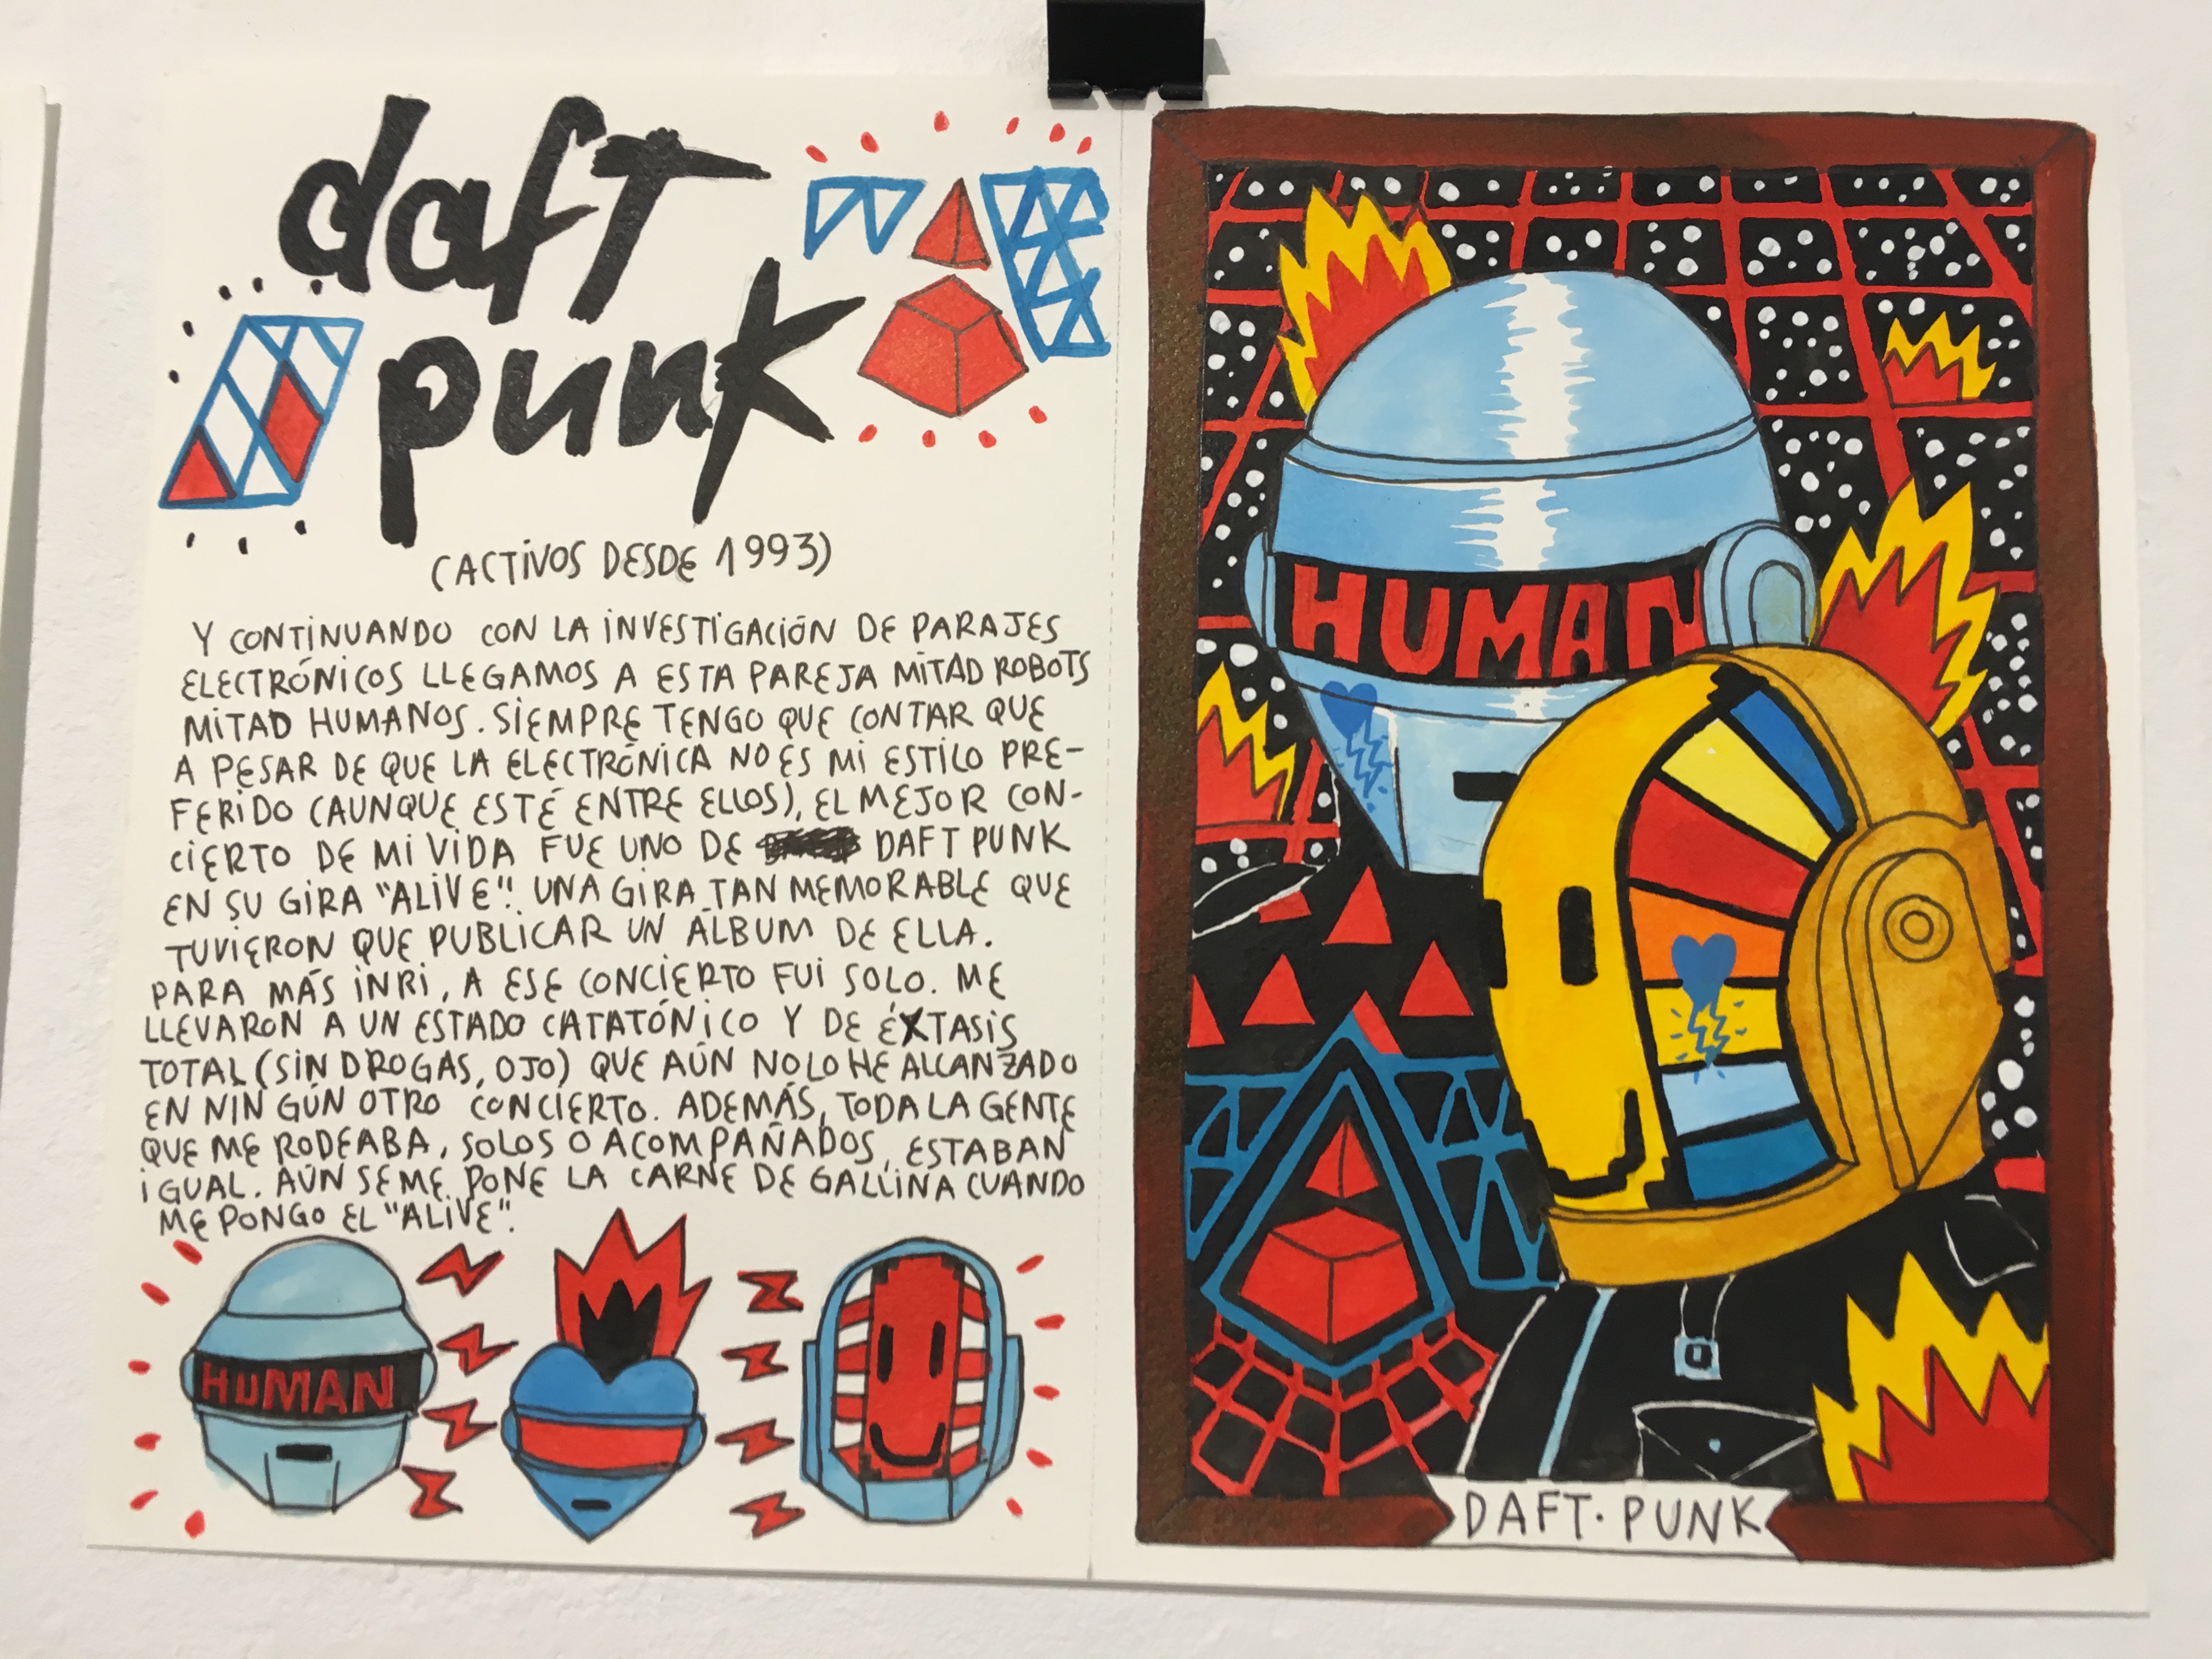 daft
punk
(ACTIVOS DESDE 1993)
Y CONTINUANDO CON LA INVESTIGACIÓN DE PARAJES
ELECTRÓNICOS LLEGAMOS A ESTA PAREJA MITAD ROBOTS
MITAD HUMANOS. SIEMPRE TENGO QUE CONTAR QUE
A PESAR DE QUE LA ELECTRÓNICA NO ES MI ESTILO PRE-
FERIDO (AUNQUE ESTÉ ENTRE ELLOS), EL MEJOR CON-
CIERTO DE MI VIDA FUE UNO DE DAFT PUNK
EN SU GIRA "ALIVE". UNA GIRA TAN MEMORABLE QUE
TUVIERON QUE PUBLICAR UN ÁLBUM DE ELLA.
PARA MÁS INRI, A ESE CONCIERTO FUI SOLO. ME
LLEVARON A UN ESTADO CATATÓNICO Y DE ÉXTASIS
TOTAL (SIN DROGAS, OJO) QUE AÚN NO LO HE ALCANZADO
EN NINGÚN OTRO CONCIERTO. ADEMÁS, TODA LA GENTE
QUE ME RODEABA, SOLOS O ACOMPAÑADOS, ESTABAN
IGUAL. AÚN SE ME PONE LA CARNE DE GALLINA CUANDO
ME PONGO EL "ALIVE".
HUMAN
HUMAN
DAFT·PUNK